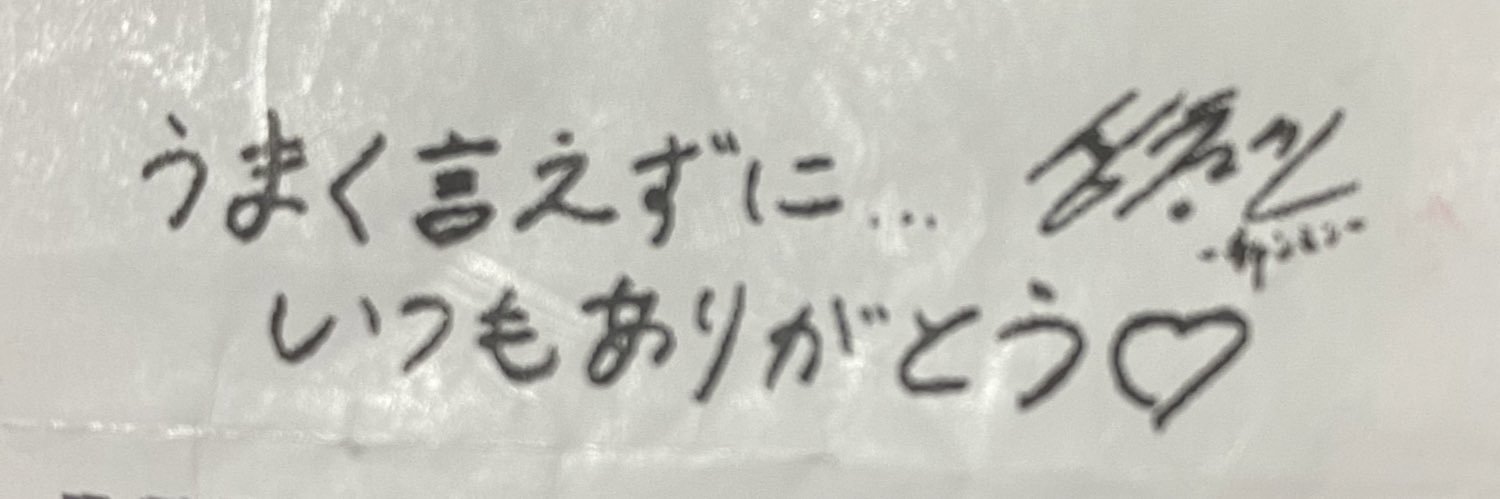 うまく言えずに...
いつもありがとう♡